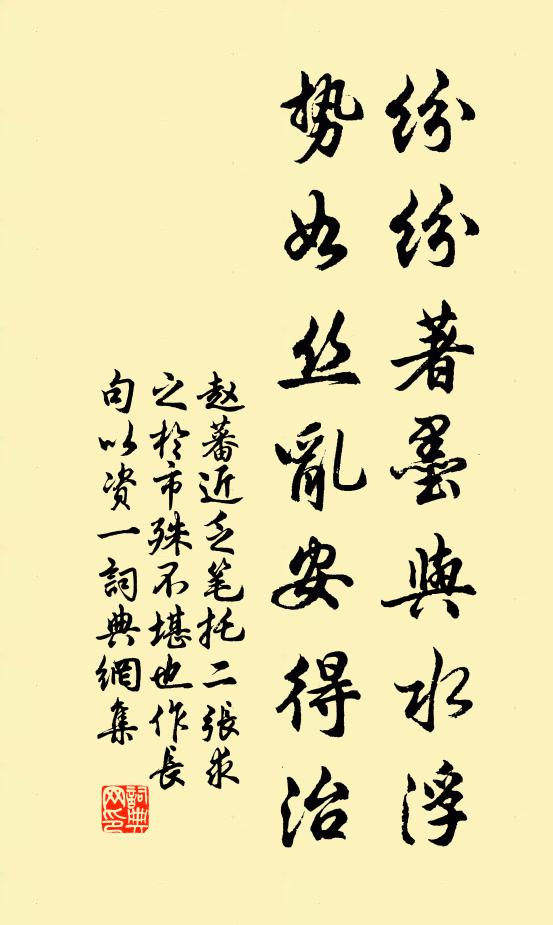 纷纷著墨與水浮
势如丝亂安得治
赵蕃近乏笔托二張求
之於市殊不堪也作長
句以资一詞典網集
詞典网印